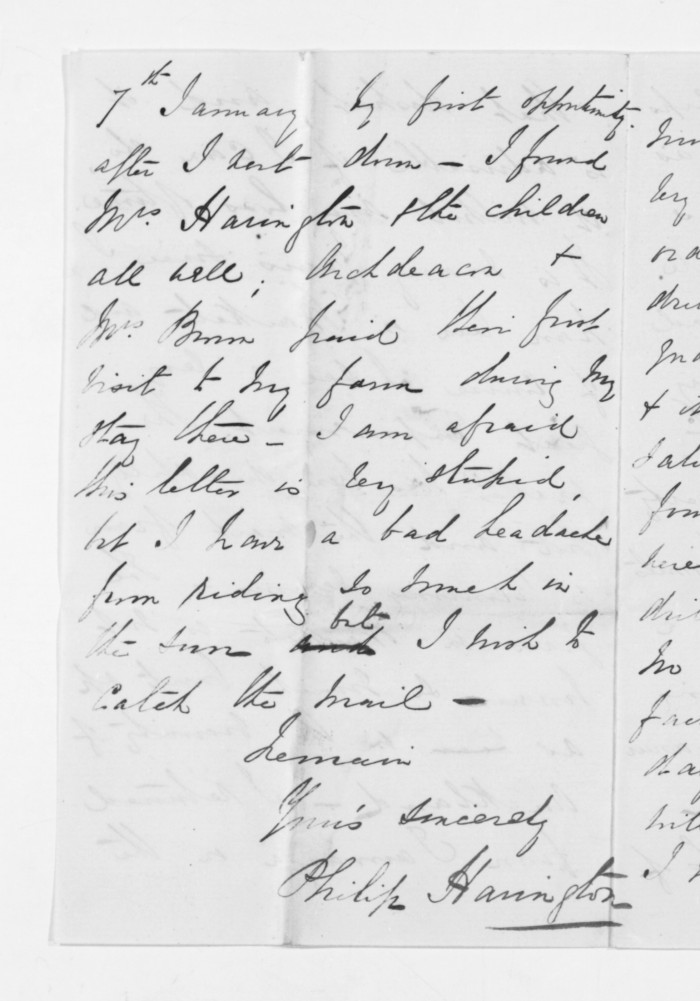 7th January by first opportunity.
after I went down – I found
Mrs. Harington & the children
all well; Archdeacon &
Mrs. Brown paid their first
visit to my farm during my
stay there – I am afraid
this letter is very stupid,
but I have a bad headache
from riding so much in
the sun and but I wish to
catch the mail –
Remain
Yours sincerely
Philip Harington
my
&
here
no
I